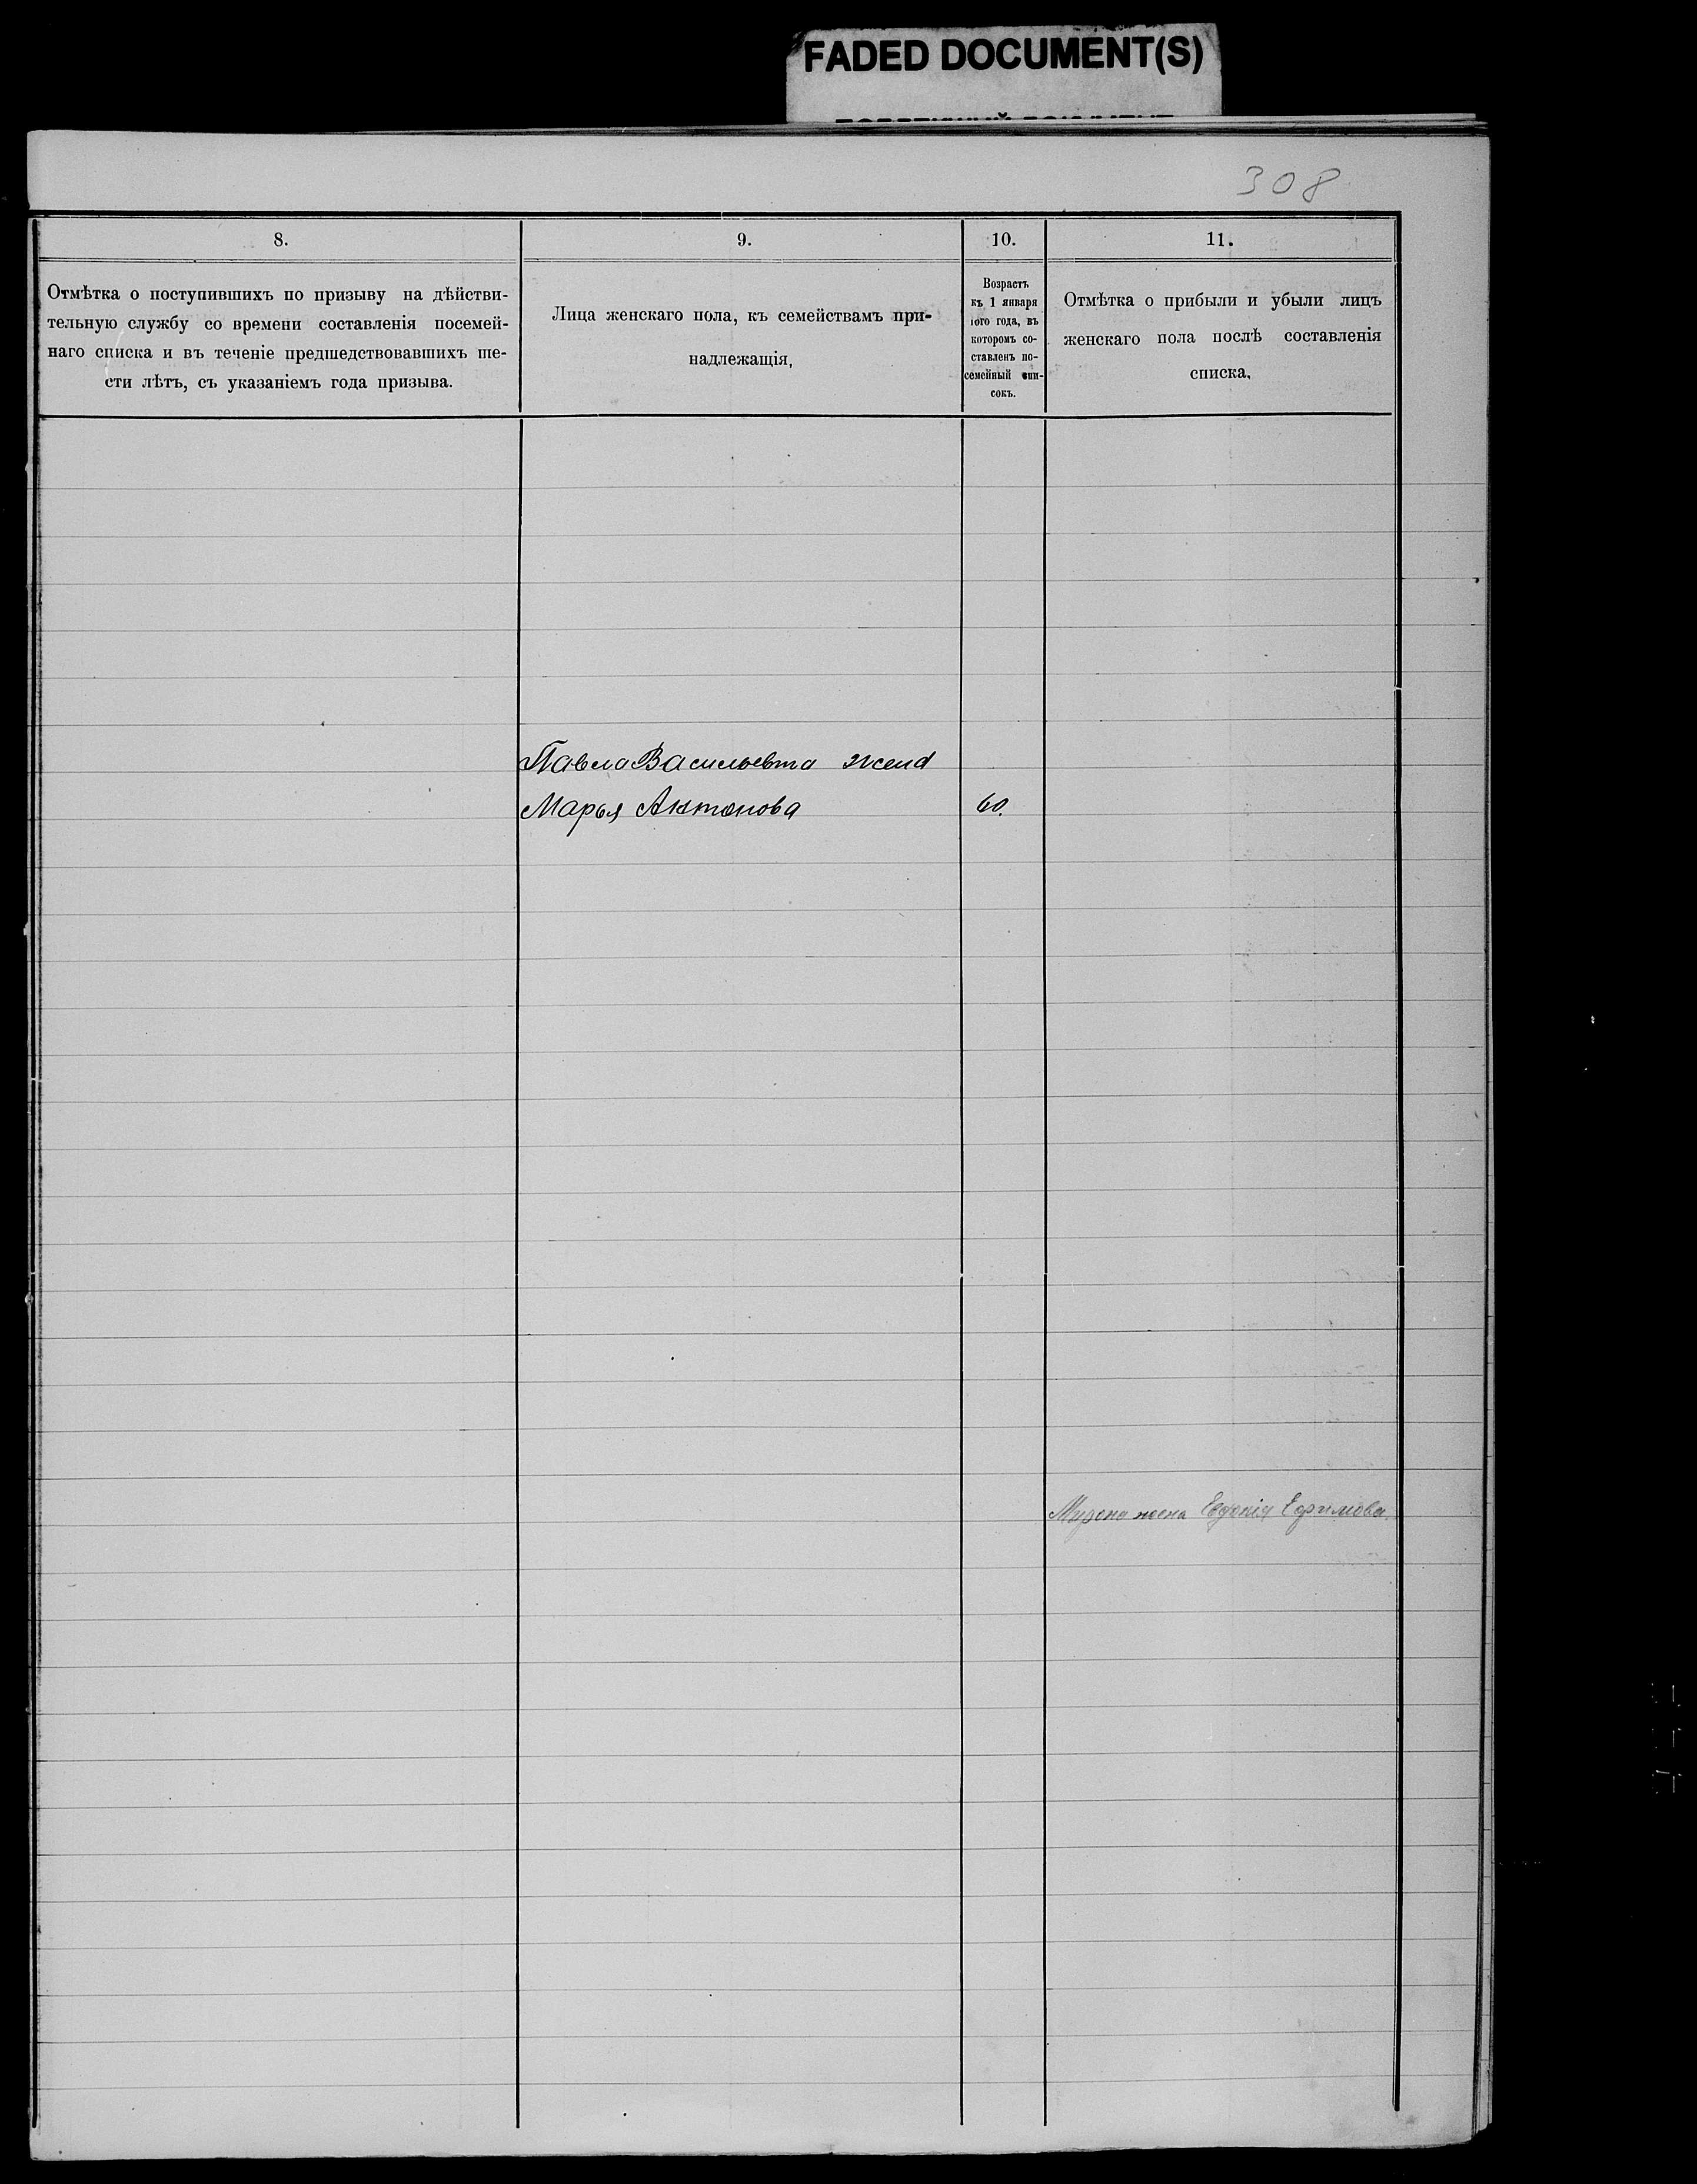 FADED DOCUMENT(S)
308
8.
Отмѣтка о поступившихъ по призыву на дѣйстви-
тельную службу со времени составленія посемей-
наго списка и въ теченіе предшедствовавшихъ ше-
сти лѣтъ, съ указаніемъ года призыва.
9.
Лица женскаго пола, къ семействамъ при-
надлежащія,
10.
Возрастъ
къ 1 января
того года, въ
которомъ со-
ставленъ по-
семейный спи-
сокъ.
11.
Отмѣтка о прибыли и убыли лицъ
женскаго пола послѣ составленія
списка,
Павла Васильевта жена
Марья Антонова
60.
жена Евдокія Ефимова